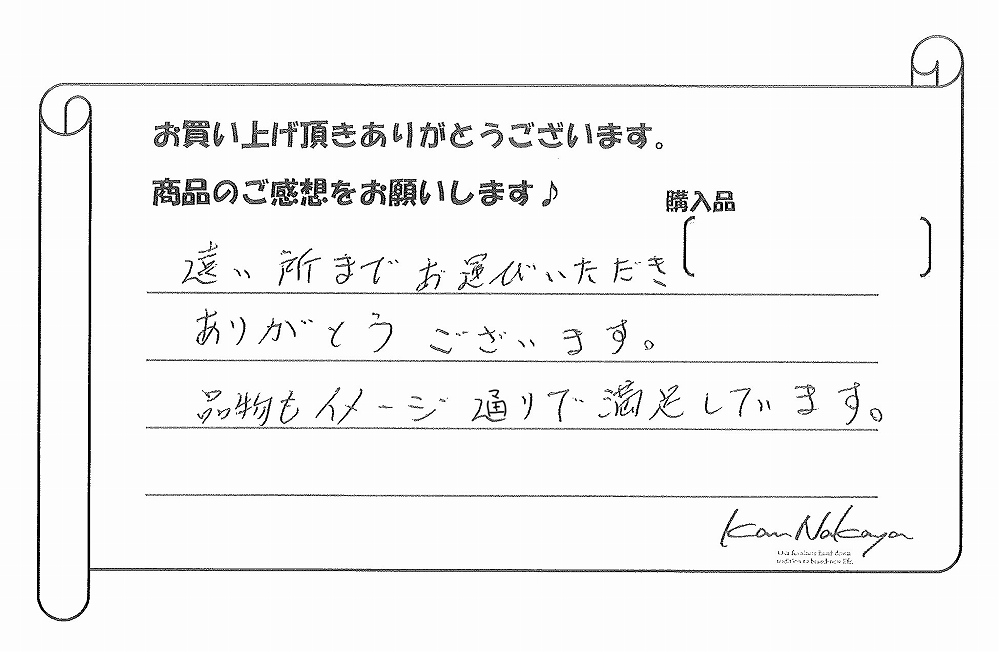 お買い上げ頂きありがとうございます。
商品のご感想をお願いします♪
購入品
遠い所までお運びいただき
ありがとうございます。
品物もイメージ通りで満足しています。
Kan Nakaya